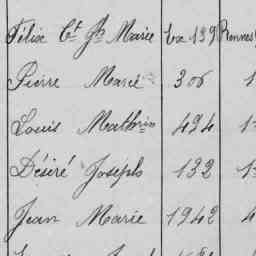 Félix Ct Jh Marie 139 Rennes
Pierre Marie 306 1
Louis Mathrin 494 1
Désiré Joseph 132 1
Jean Marie 1942 4